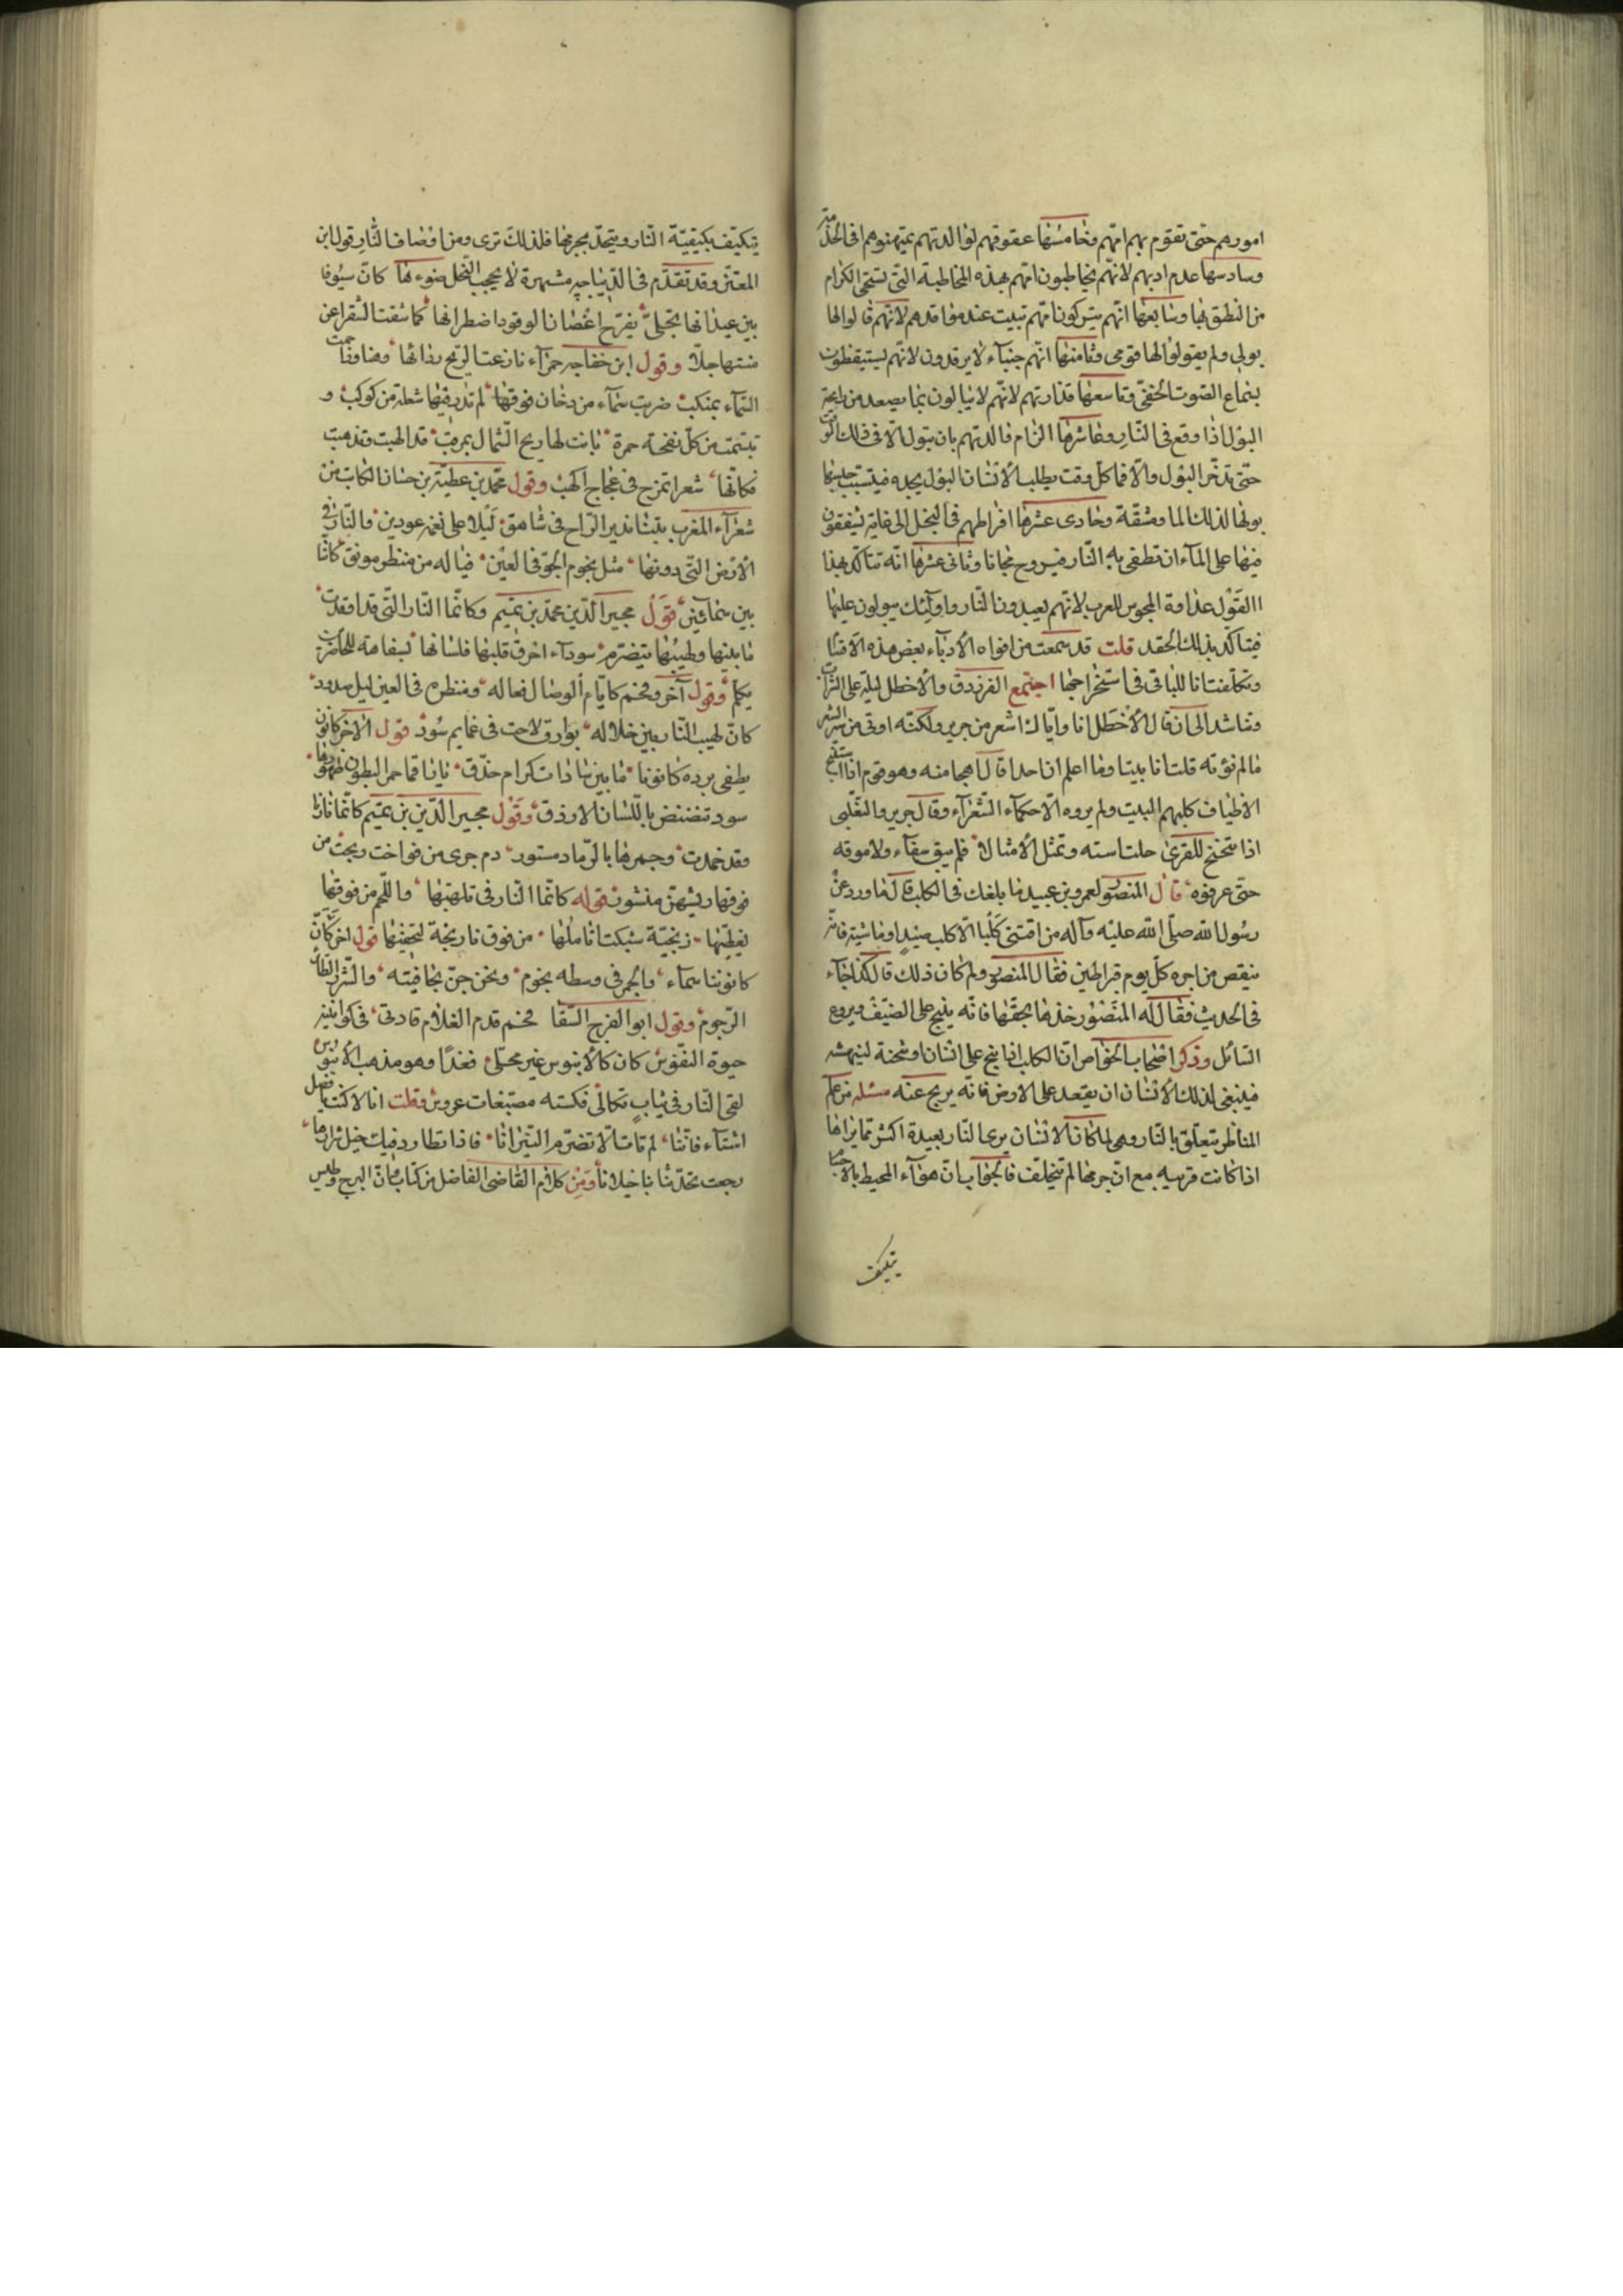 امورهم حتى تقوم بهم امّهم وخامسها عقوقهم لوالدتهم يمتهنوهم فى الخدمة
وسادسها عدم ادبهم لانّهم يخاطبون امّهم بهذه المخاطبة التى تستحى الكرام
من النطق بها وسابعها انّهم يتركون امّهم تبيت عند مواقدهم لانّهم قالوا لها
بولى ولم يقولوا لها قومى وثامنها انّهم جبناء لا يرقدون لانّهم يستيقظون
بسماع الصوت الخفىّ وتاسعها قذارتهم لانّهم لا يبالون بما يصعد من رايحة
البول اذا وقع فى النار وعاشرها الزام والدتهم بان تبول الّا فى ذلك الوقت
حتى تدّخر البول والّا فما كلّ وقت يطلب الانسان البول يجده فيتسبب
بولها لذلك الما ومشقّة وحادى عشرها افراطهم فى البخل الى غاية يشفقون
فيها على الماء ان تطفى به النار فيروح مجانا وثانى عشرها انّه تتاكّد بهذا
القول عداوة المجوس للعرب لانّهم يعبدون النار واوآئك يبولون عليها
فيتاكّد بذلك الحقد قلت قد سمعت من افواه الأدباء بعض هذه الاقسام
وتكلّفت انا للباقى فى استخراجها اجتمع الفرزدق والأخطل ليلة على الشراب
وتناشدا الى ان قال الأخطل انا وايّاك اشعر من جرير ولكنّه اوتى من
ما لم نؤته قلت انا بيتا وما اعلم ان احدا قال اهجا منه وهو قوم اذا استنبح
الاضياف كلبهم البيت ولم يروه الّا حكماء الشعرآء وقال جرير والتغلبى
اذا تنحنح للقرى حك استه وتمثل الأمثالا فلم يبق سقاء ولا موقه
حتى عرفوه قال المنصور لعمرو بن عبيد ما بلغك فى الكلب قال ما ورد عن
رسول الله صلّى الله عليه وآله من اقتنى كلبا الّا كلب صيد او ماشية فانّه
ينقص من اجره كلّ يوم قيراطين فقال المنصور ولم كان ذلك قال كذا جآء
فى الحديث فقال له المنصور خذها بحقّها فانّه ينبح على الضيف ويروع
السائل وذكر اصحاب الخواص انّ الكلب اذا نبح على انسان او شحنه لينهشه
فينبغى لذلك الأنسان ان يقعد على الارض فانّه يرجع عنه مسئلة من علم
المناظر يتعلّق بالنار وهى لما كان الانسان يرى النار بعيدة اكثر ممّا يراها
اذا كانت قريبه مع انّ جرمها لم يتخلّف فالجواب بانّ هوآء المحيط بالاجسام
يتكيف
يتكيّف بكيفيّة النار ويتحدّ بجرمها فلذلك ترى ومن اوصاف النار قول ابن
المعتز وقد تقدّم فى الديباجه مشهرة لا يحجب البخل ضوءها كانّ سيوفا
بين عيدانها تجلى يفرّج اغصان الوقود اضطرابها كما شقت الشقرا عن
متنها جلّا وقول ابن خفاجه حمرآء نازعت الريح ردائها
السماء بمنكب ضربت سماء من دخان فوقها لم تدر فيها شعلة من كوكب و
تبسّمت من كلّ نفحة حمرة باتت لها ريح الشمال بمرقب قد الهبت فتذهبت
فكانّها شعرا تمزح فى عجاج اكهب وقول محمّد بن عطيّة بن حسان الكاتب من
شعرآء المغرب بتنا ندير الراح فى شاهق ليلا على نغمه عودين والنار فى
الأرض التى دونها مثل نجوم الجوّ فى العين فيا له من منظر مونق كانّا
بين سمائين قول مجير الدين محمّد بن تميم وكانّما النار التى قد اوقدت
ما بينها ولهيبها يتضرّم سودآء احرق قلبها فلسانها بسفاهة للحاضرين
يكلّم وقول آخر وفحم كايّام الوصال فعاله ومنظره فى العين ليل صدود
كانّ لهيب النار بين خلاله بوارق لاحت فى غمايم سود قول الاخر كانون
يطفى برده كانونا ما بين سادات كرام حذّق باناقما حمر البطون ظهورها
سود تنضنض باللسان الازرق وقول مجير الدين بن تميم كانّما نارنا
وقد خمدت وجمرها بالرماد مستور دم جرى من فواخت ذبحت من
فوقها ريشهنّ منشور قوله كانّما النار فى تلهبها والفحم من فوقها
يغطّيها زنجيّة شبكت اناملها من فوق نارنجة لتخفيها قول اخر كانّ
كانوننا سماء والجمر فى وسطه نجوم ونحن جنّ بجافيته والشرر الطائر
الرجوم وقول ابو الفرج السقا فحم قدم الغلام فادنى فى كوانينه
حيوة النفوس كان كالأبنوس غير محلّى فغدا وهو مذهب الأبنوس
لقى النار فى ثياب ثكالى فكسته مصبّغات عروس وقلت
اشتاء فاتنا لم تات الّا تضرم النيرانا فاذا تطارد فيك خيل شرارها
رجعت تحدّثنا باخيلانا ومن كلام القاضى الفاضل من كتاب وكانّ البرج وليس